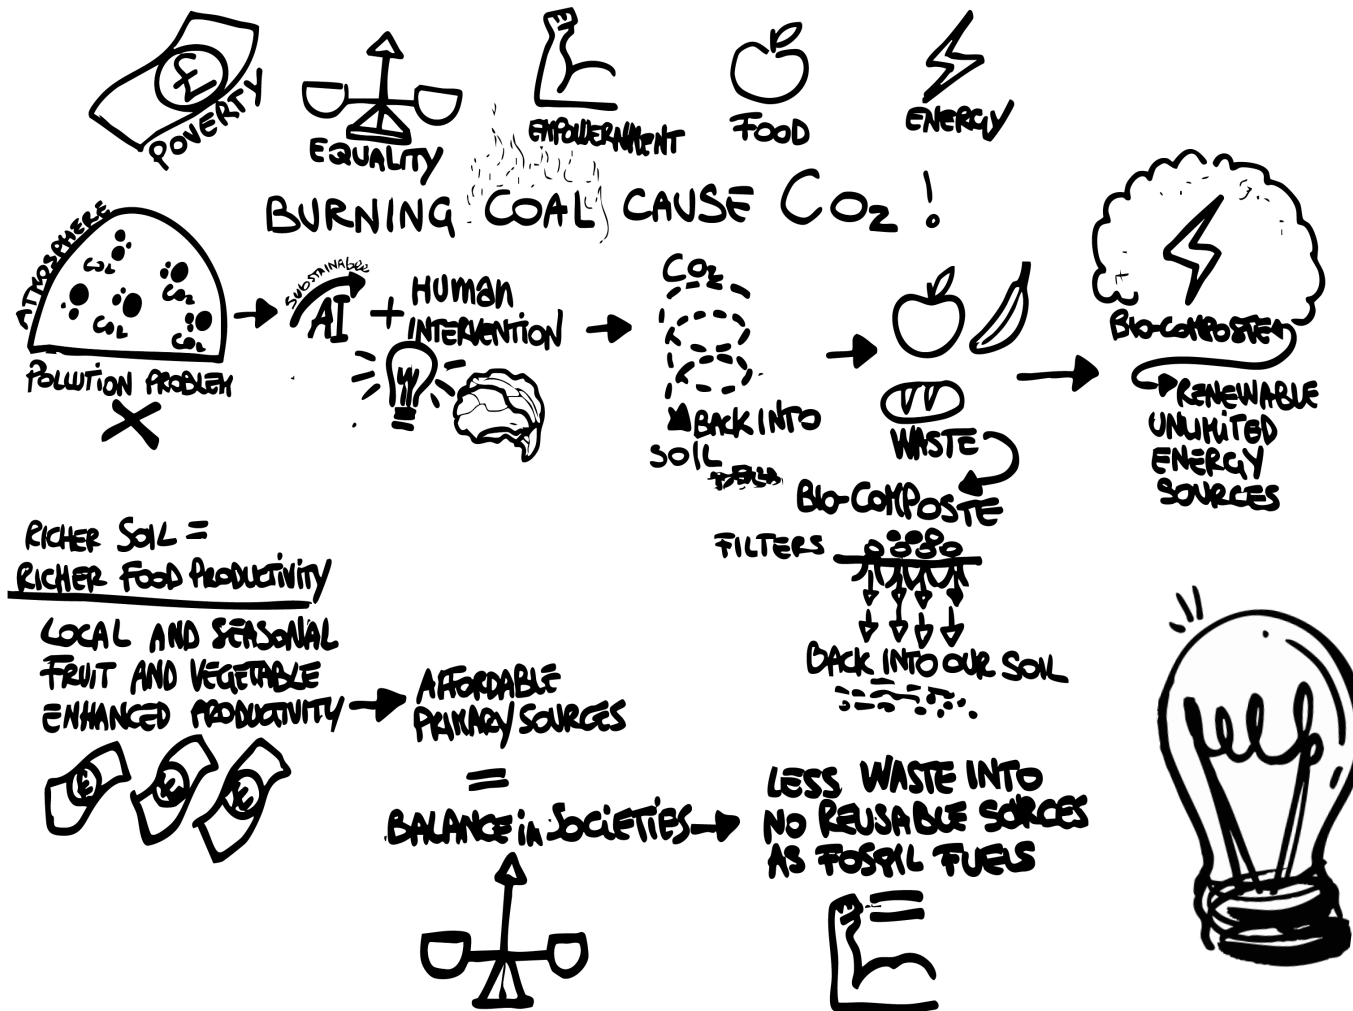 £
POVERTY
EQUALITY
EMPOWERNMENT
FOOD
ENERGY
BURNING COAL CAUSE CO2 !
ATMOSPHERE
CO2
CO2
CO2
CO2
POLLUTION PROBLEM
SUBSTAINABLE
AI + HUMAN
INTERVENTION
CO2
BACK INTO
SOIL
WASTE
BIO-COMPOSTE
FILTERS
BACK INTO OUR SOIL
BIO-COMPOSTE
RENEWABLE
UNLIMITED
ENERGY
SOURCES
RICHER SOIL =
RICHER FOOD PRODUCTIVITY
LOCAL AND SEASONAL
FRUIT AND VEGETABLE
ENHANCED PRODUCTIVITY
£ £ £
AFFORDABLE
PRIMARY SOURCES
=
BALANCE in SOCIETIES
LESS WASTE INTO
NO REUSABLE SORCES
AS FOSSIL FUELS
=